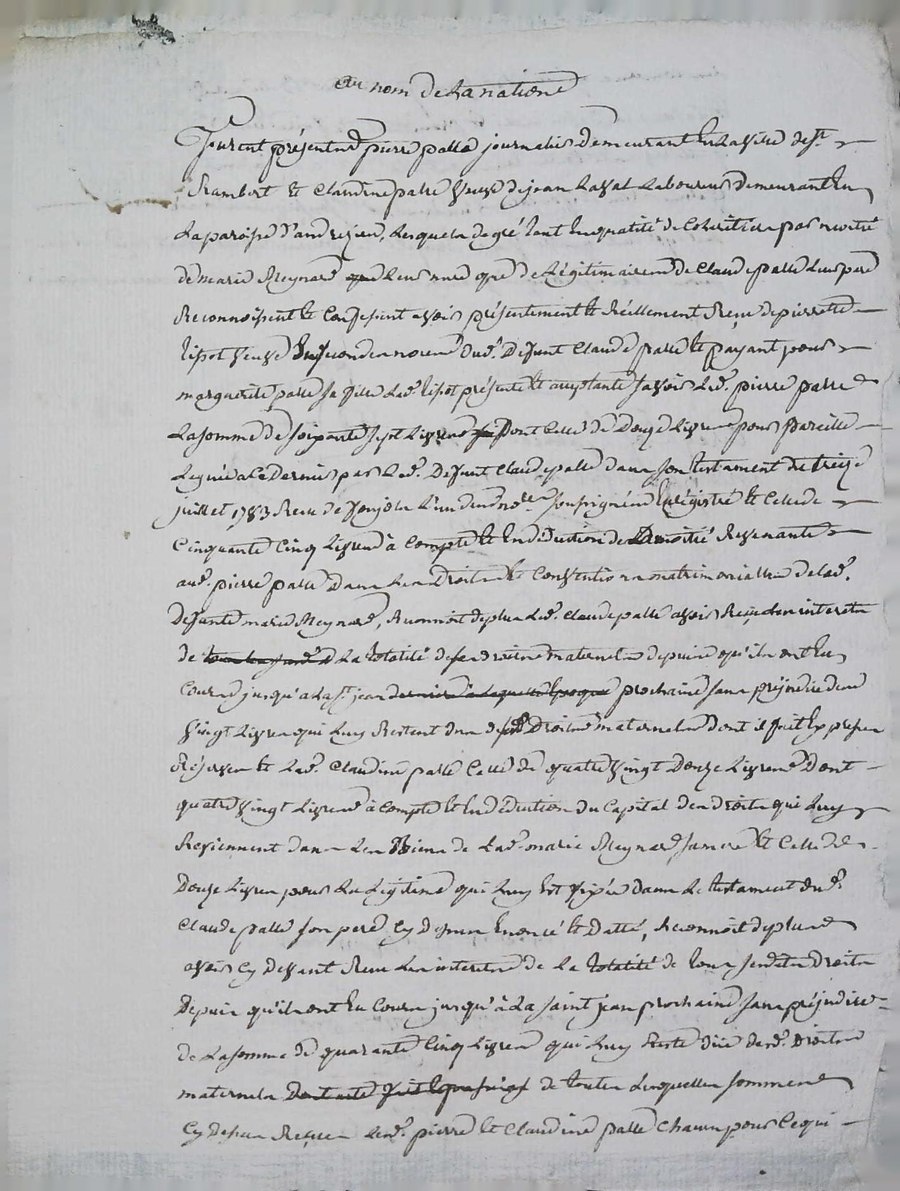 au nom de la nation
Furent présents pierre palle journalier demeurant en la ville de st
Rambert et Claudine palle veuve de jean Lassal Laboureur demeurant en
La paroisse d'andrezieu, Lesquels de gré tant en qualité de Cohéritiers par moitié
de marie Meynard leur mere que de Légitimaires de Claude palle leur pere
Reconnoissent et Confessent avoir présentement et Réellement Reçu de pierrette
Tipot veuve en secondes noces dud. Defunt Claude palle et payant pour
marguerite palle sa fille Lad. Tipot présente et acceptante savoir Led. pierre palle
La somme de soixante sept Livres Dont Celle de Douze Livres pour pareille
Leguée a Ce dernier par Led. Defunt Claude palle dans son testament du treize
juillet 1783 Reçu de l'un des nores soussignés Enregistré et Celle de
Cinquante Cinq Livres à Compte et En déduction de La moitié Revenante
aud. pierre palle Dans Les Droits et Constitions matrimonialles de lad.
Defunte marie Meynard, Reconnoit de plus Led. Claude palle avoir Reçu les interets
de la totalité de ses droits maternels depuis qu'ils ont Eu
Cours jusqu'a La st jean prochaine sans préjudice de
vingt Livres qui Luy Restent dus de ses Droits maternels dont il fait Expresses
Réserves et Lad. Claudine palle Celle de quatre vingt Douze Livres Dont
quatre vingt Livres à Compte et En déduction du Capital des droits qui Luy
Reviennent dans Les Biens de Lad. marie Meynard sa mere et Celle de
Douze Livres pour La Légitime qui Luy Est fixée Dans Le testament dud.
Claude palle son pere Cy dessus Enoncé et Datté, Reconnoit de plus
avoir Cy devant Reçu Les interets de La totalité de tous sesdits Droits
Depuis qu'ils ont Eu Cours jusqu'à La saint jean prochaine sans préjudice
de La somme de quarante Cinq Livres qui Luy Reste düe desd. Droits
maternels de toutes Lesquelles sommes
Cy dessus Reçues Lesd. pierre et Claudine palle Chacun pour Ce qui